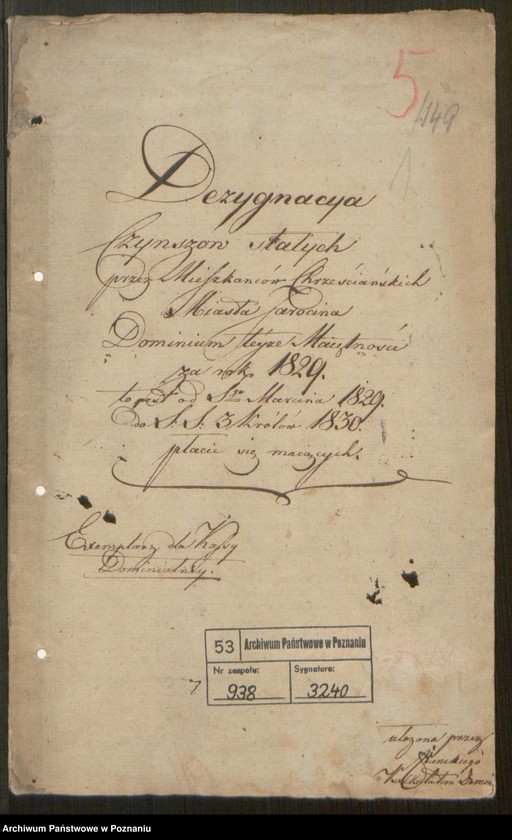 5
/149
1
Dezygnacya
Czynszow stałych
przez Mieszkanców Chrzesciańskich
Miasta Jarocina
Dominium teyze Maiętności
za rok 1829.
to jest od Sgo Marcina 1829.
do S. S. 3 Królów 1830.
płacić się maiących.
Exemplarz dla Kassy
Dominialney.
53 Archiwum Państwowe w Poznaniu
Nr zespołu: Sygnatura:
938 3240
ułozona przez
Kalkulatora
Archiwum Państwowe w Poznaniu
Archiwum Państwowe w Poznaniu